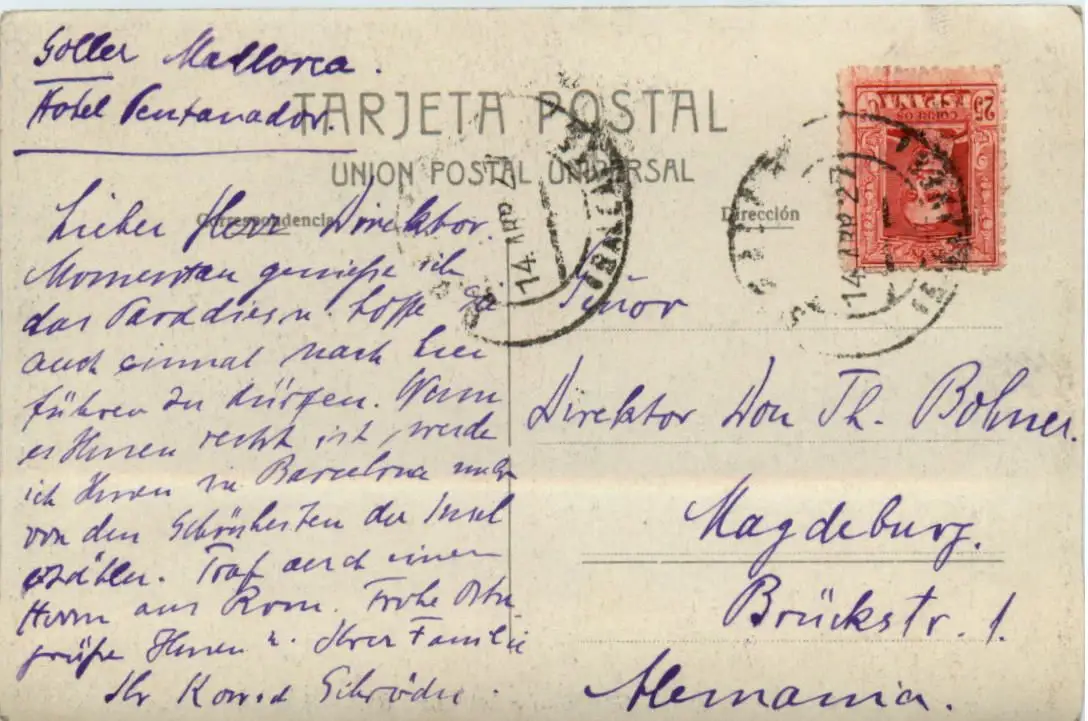 Soller Mallorca.
Hotel Pentanador.
TARJETA POSTAL
UNION POSTAL UNIVERSAL
Correspondencia
Dirección
Lieber Herr Direktor.
Momentan genieße ich
das Paradies u. hoffe Sie
auch einmal nach hier
führen zu dürfen. Wenn
es Ihnen recht ist, werde
ich Ihnen in Barcelona mehr
von den Schönheiten der Insel
erzählen. Traf auch einen
Herrn aus Rom. Frohe Oster
grüße Ihnen u. Ihrer Familie
Ihr Konrad Schröder.
Señor
Direktor Don Th. Bohner.
Magdeburg.
Brückstr. 1.
Alemania.
14 ABR 27
14 ABR 27
CORREOS
ESPAÑA
25